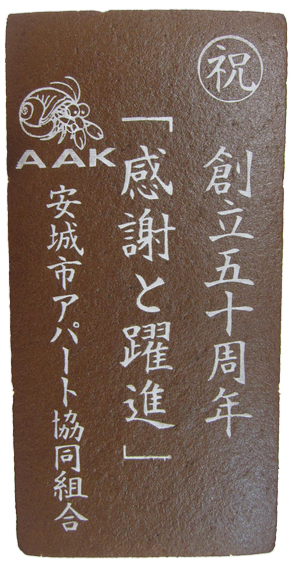 ㊗
創立五十周年
「感謝と躍進」
AAK
安城市アパート協同組合